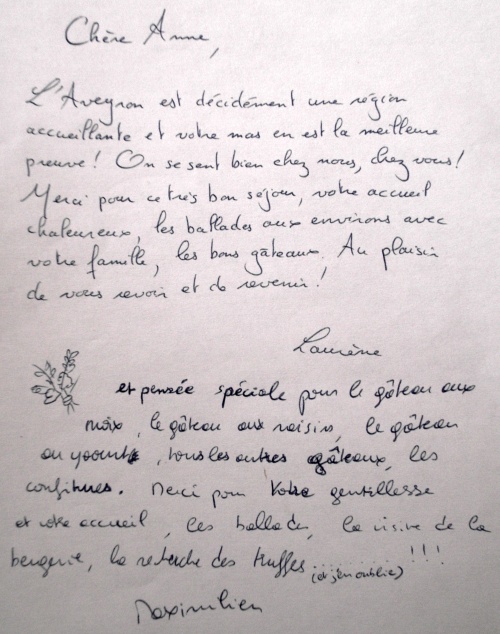 Chère Anne,
L'Aveyron est décidément une région
accueillante et votre mas en est la meilleure
preuve ! On se sent bien chez nous, chez vous !
Merci pour ce très bon séjour, votre accueil
chaleureux, les ballades aux environs avec
votre famille, les bons gâteaux. Au plaisir
de vous revoir et de revenir !
Laurène
et pensée spéciale pour le gâteau aux
noix, le gâteau aux raisins, le gâteau
au yaourt, tous les autres gâteaux, les
confitures. Merci pour votre gentillesse
et votre accueil, les ballades, la visite de la
bergerie, la recherche des truffes.......... !!!
(et j'en oublie)
Maximilien